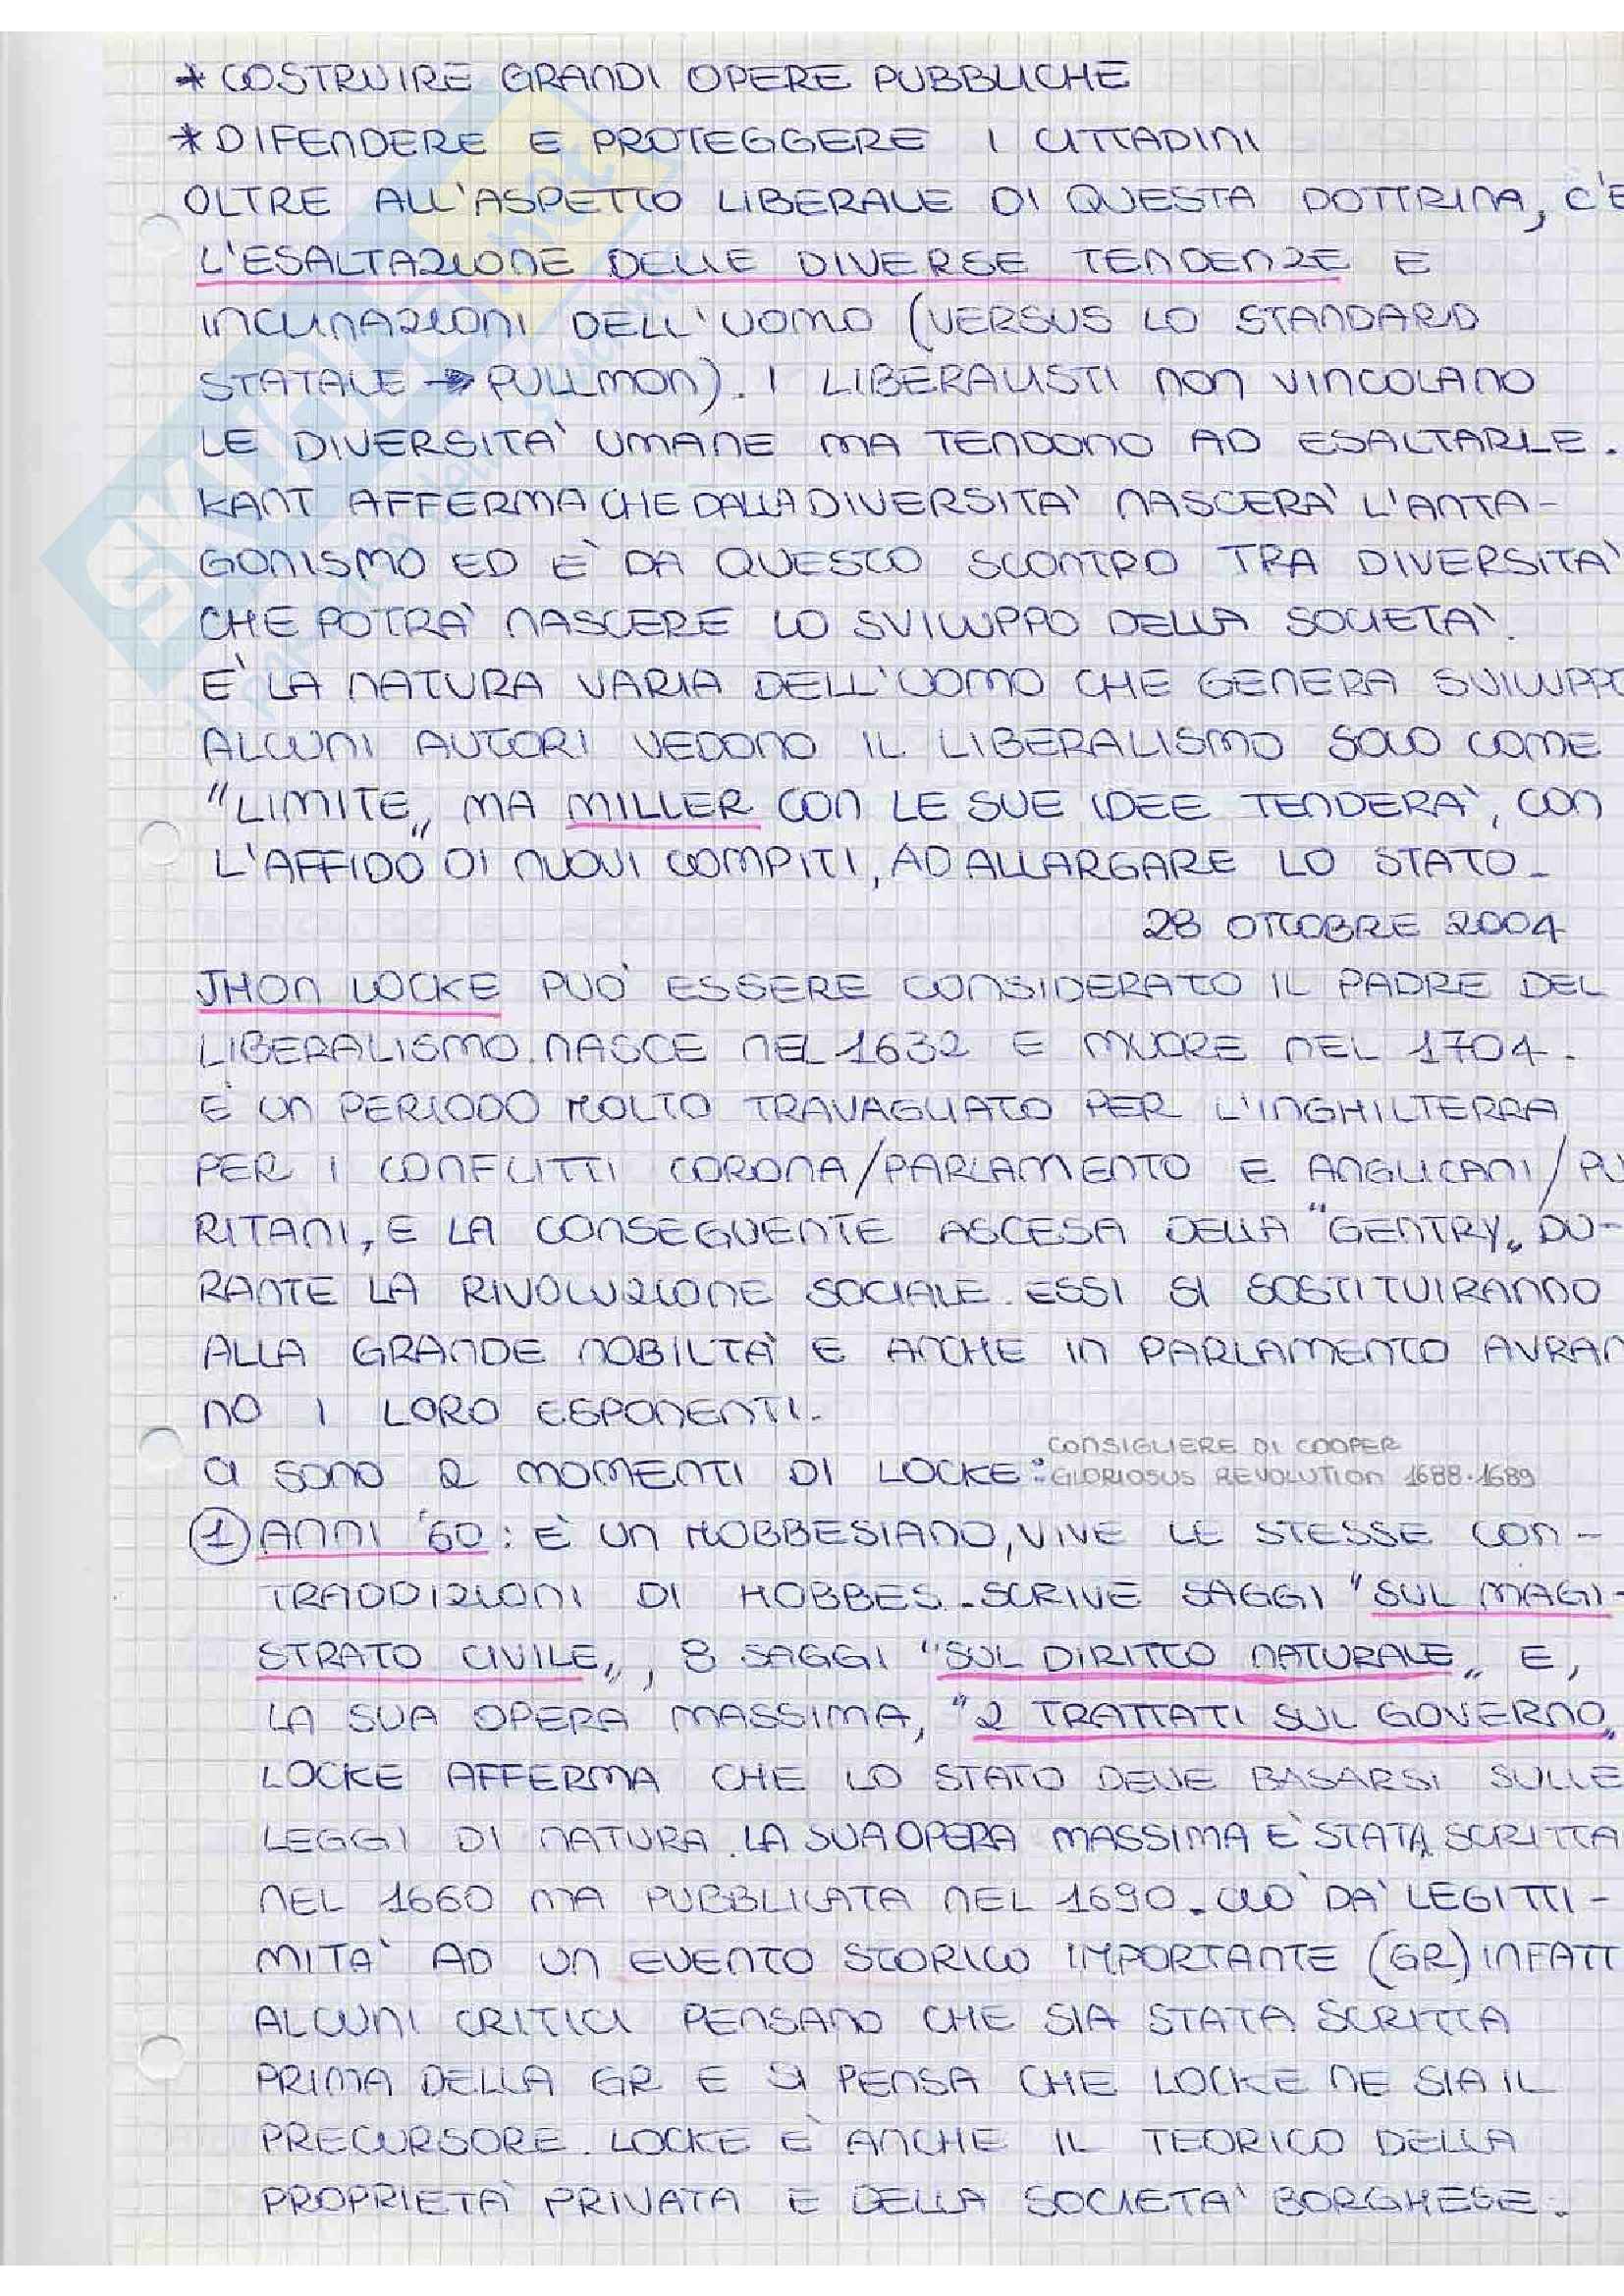 * COSTRUIRE GRANDI OPERE PUBBLICHE
* DIFENDERE E PROTEGGERE I CITTADINI
OLTRE ALL'ASPETTO LIBERALE DI QUESTA DOTTRINA, C'È
L'ESALTAZIONE DELLE DIVERSE TENDENZE E
INCLINAZIONI DELL'UOMO (VERSUS LO STANDARD
STATALE → PULLMON). I LIBERALISTI NON VINCOLANO
LE DIVERSITA' UMANE MA TENDONO AD ESALTARLE.
KANT AFFERMA CHE DALLA DIVERSITA' NASCERA' L'ANTA-
GONISMO ED E' DA QUESTO SCONTRO TRA DIVERSITA'
CHE POTRA' NASCERE LO SVILUPPO DELLA SOCIETA'.
E' LA NATURA VARIA DELL'UOMO CHE GENERA SVILUPPO
ALCUNI AUTORI VEDONO IL LIBERALISMO SOLO COME
"LIMITE„ MA MILLER CON LE SUE IDEE TENDERA', CON
L'AFFIDO DI NUOVI COMPITI, AD ALLARGARE LO STATO-
28 OTTOBRE 2004
JHON LOCKE PUO' ESSERE CONSIDERATO IL PADRE DEL
LIBERALISMO. NASCE NEL 1632 E MUORE NEL 1704.
E' UN PERIODO MOLTO TRAVAGLIATO PER L'INGHILTERRA
PER I CONFLITTI CORONA/PARLAMENTO E ANGLICANI/PU
RITANI, E LA CONSEGUENTE ASCESA DELLA "GENTRY„ DU-
RANTE LA RIVOLUZIONE SOCIALE. ESSI SI SOSTITUIRANNO
ALLA GRANDE NOBILTA' E ANCHE IN PARLAMENTO AVRAN
NO I LORO ESPONENTI.
CONSIGLIERE DI COOPER
CI SONO 2 MOMENTI DI LOCKE: GLORIOSUS REVOLUTION 1688-1689
1 ANNI '60: E' UN HOBBESIANO, VIVE LE STESSE CON-
TRADDIZIONI DI HOBBES. SCRIVE SAGGI "SUL MAGI-
STRATO CIVILE„, 8 SAGGI "SUL DIRITTO NATURALE„ E,
LA SUA OPERA MASSIMA, "2 TRATTATI SUL GOVERNO„
LOCKE AFFERMA CHE LO STATO DEVE BASARSI SULLE
LEGGI DI NATURA. LA SUA OPERA MASSIMA E' STATA SCRITTA
NEL 1660 MA PUBBLICATA NEL 1690. CIO' DA' LEGITTI-
MITA' AD UN EVENTO STORICO IMPORTANTE (GR) INFATTI
ALCUNI CRITICI PENSANO CHE SIA STATA SCRITTA
PRIMA DELLA GR E SI PENSA CHE LOCKE NE SIA IL
PRECURSORE. LOCKE E' ANCHE IL TEORICO DELLA
PROPRIETA' PRIVATA E DELLA SOCIETA' BORGHESE.